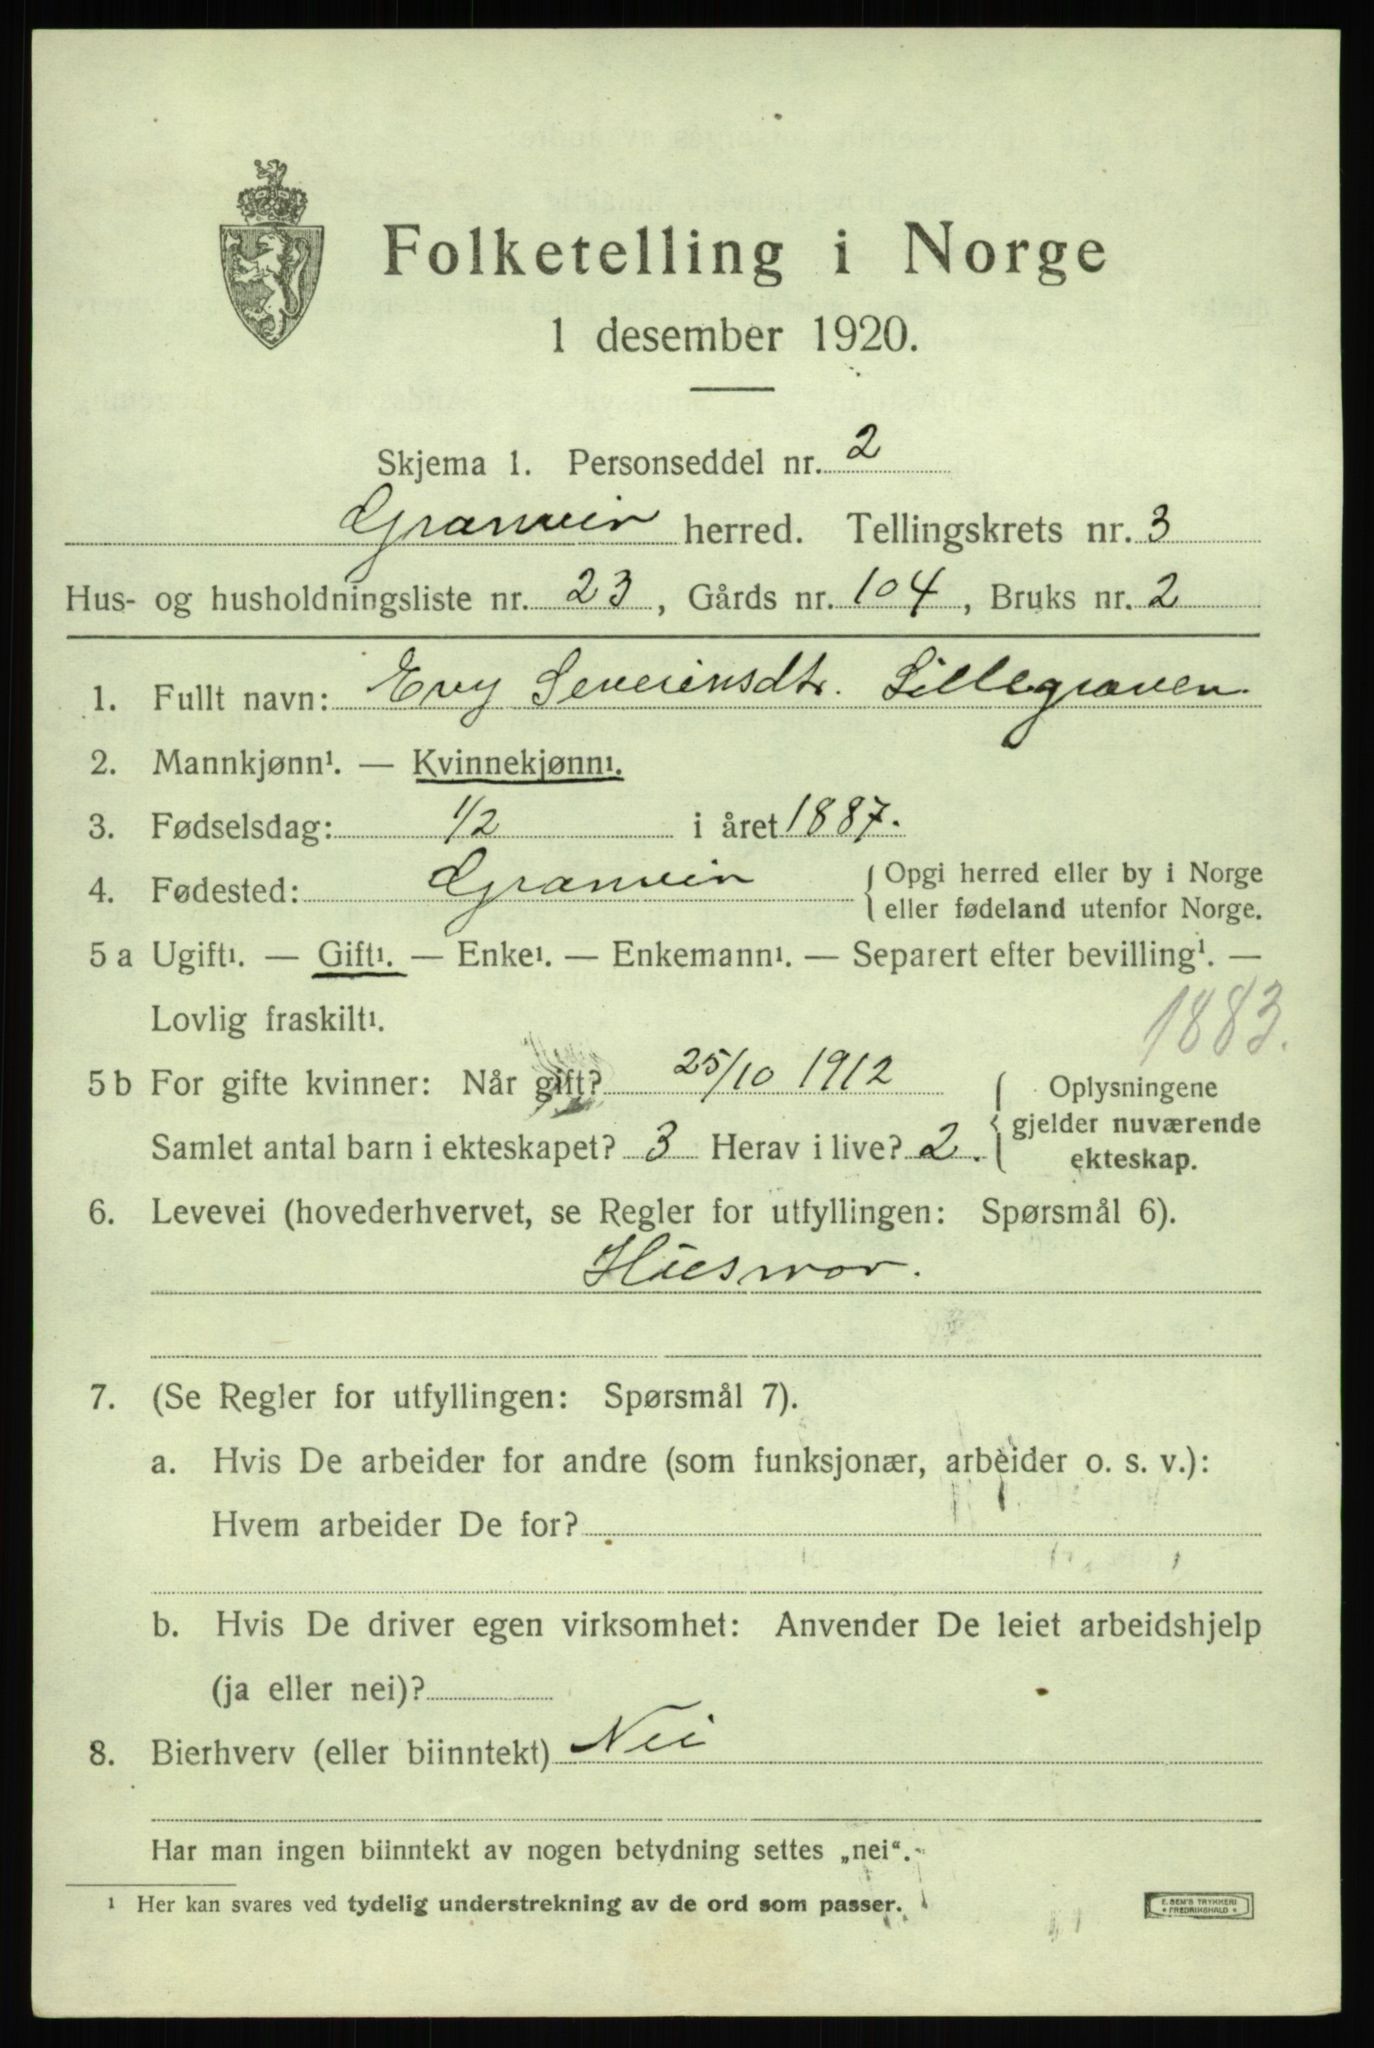 Folketelling i Norge
1 desember 1920.
Skjema 1. Personseddel nr. 2
Granvin herred. Tellingskrets nr. 3
Hus- og husholdningsliste nr. 23, Gårds nr. 104, Bruks nr. 2
1. Fullt navn: Evy Severinsdtr. Lillegraven
2. Mannkjønn¹. — Kvinnekjønn¹.
3. Fødselsdag: 1/2 i året 1887.
4. Fødested: Granvin { Opgi herred eller by i Norge
eller fødeland utenfor Norge.
5 a Ugift¹. — Gift¹. — Enke¹. — Enkemann¹. — Separert efter bevilling¹. —
Lovlig fraskilt¹.
1883.
5 b For gifte kvinner: Når gift? 25/10 1912
Samlet antal barn i ekteskapet? 3 Herav i live? 2.
{ Oplysningene
gjelder nuværende
ekteskap.
6. Levevei (hovederhvervet, se Regler for utfyllingen: Spørsmål 6).
Husmor.
7. (Se Regler for utfyllingen: Spørsmål 7).
a. Hvis De arbeider for andre (som funksjonær, arbeider o. s. v.):
Hvem arbeider De for?
b. Hvis De driver egen virksomhet: Anvender De leiet arbeidshjelp
(ja eller nei)?
8. Bierhverv (eller biinntekt) Nei
Har man ingen biinntekt av nogen betydning settes „nei“.
¹ Her kan svares ved tydelig understrekning av de ord som passer.
E. SEM'S TRYKKERI
• FREDRIKSHALD •